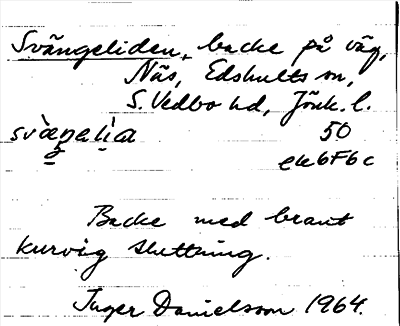 Svängeliden, backe på väg,
Näs, Edshults sn,
S. Vedbo hd, Jönk. l.
50
ek6F6c
Backe med brant
kurvig sluttning.
Inger Danielsson 1964.